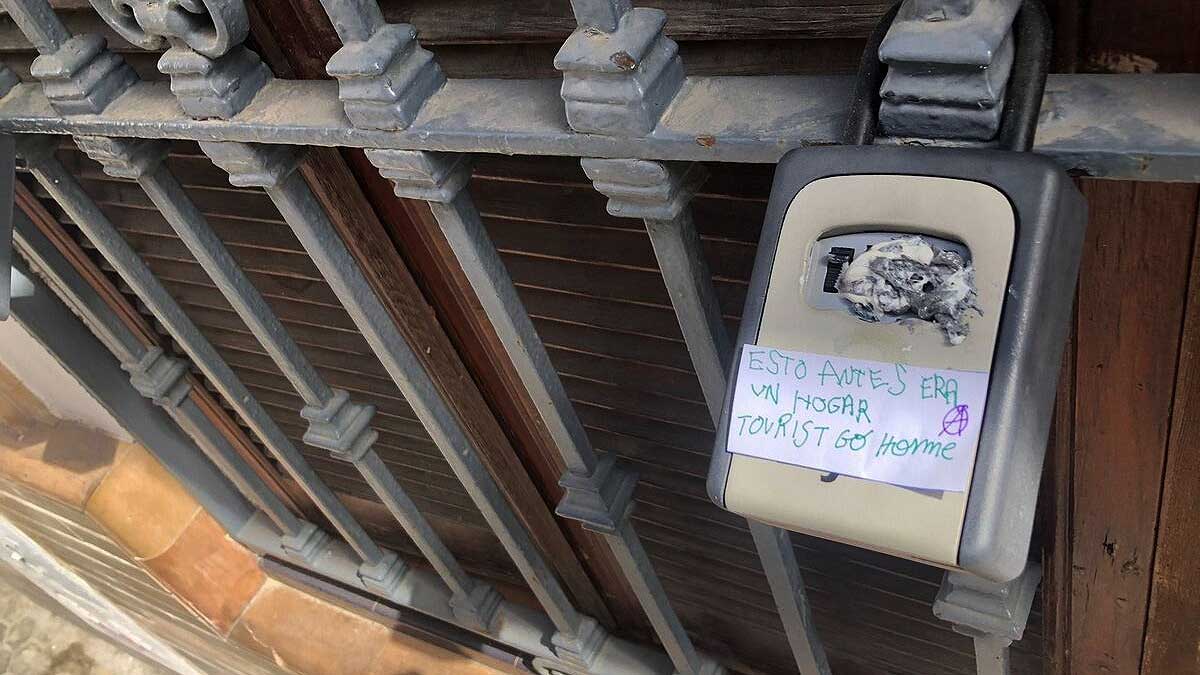 ESTO ANTES ERA
UN HOGAR
TOURIST GO Home